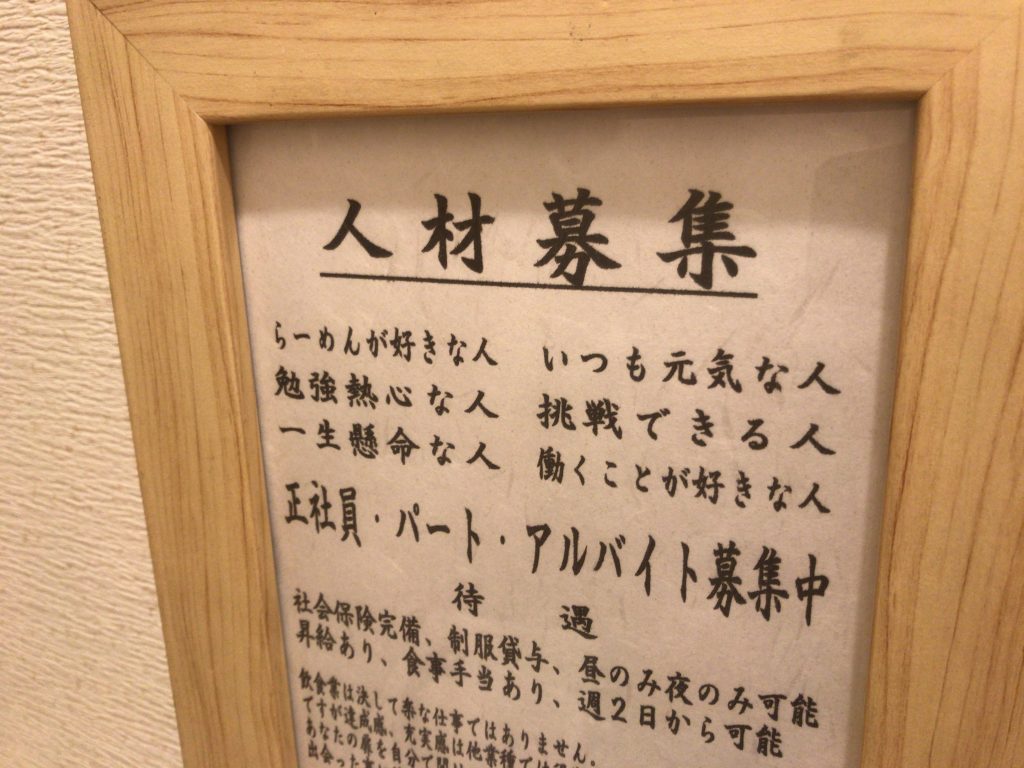 人材募集
らーめんが好きな人 いつも元気な人
勉強熱心な人 挑戦できる人
一生懸命な人 働くことが好きな人
正社員・パート・アルバイト募集中
待遇
社会保険完備、制服貸与、昼のみ夜のみ可能
昇給あり、食事手当あり、週2日から可能
飲食業は決して楽な仕事ではありません。
ですが達成感、充実感は他業種では
あなたの扉を自分で開
出会った